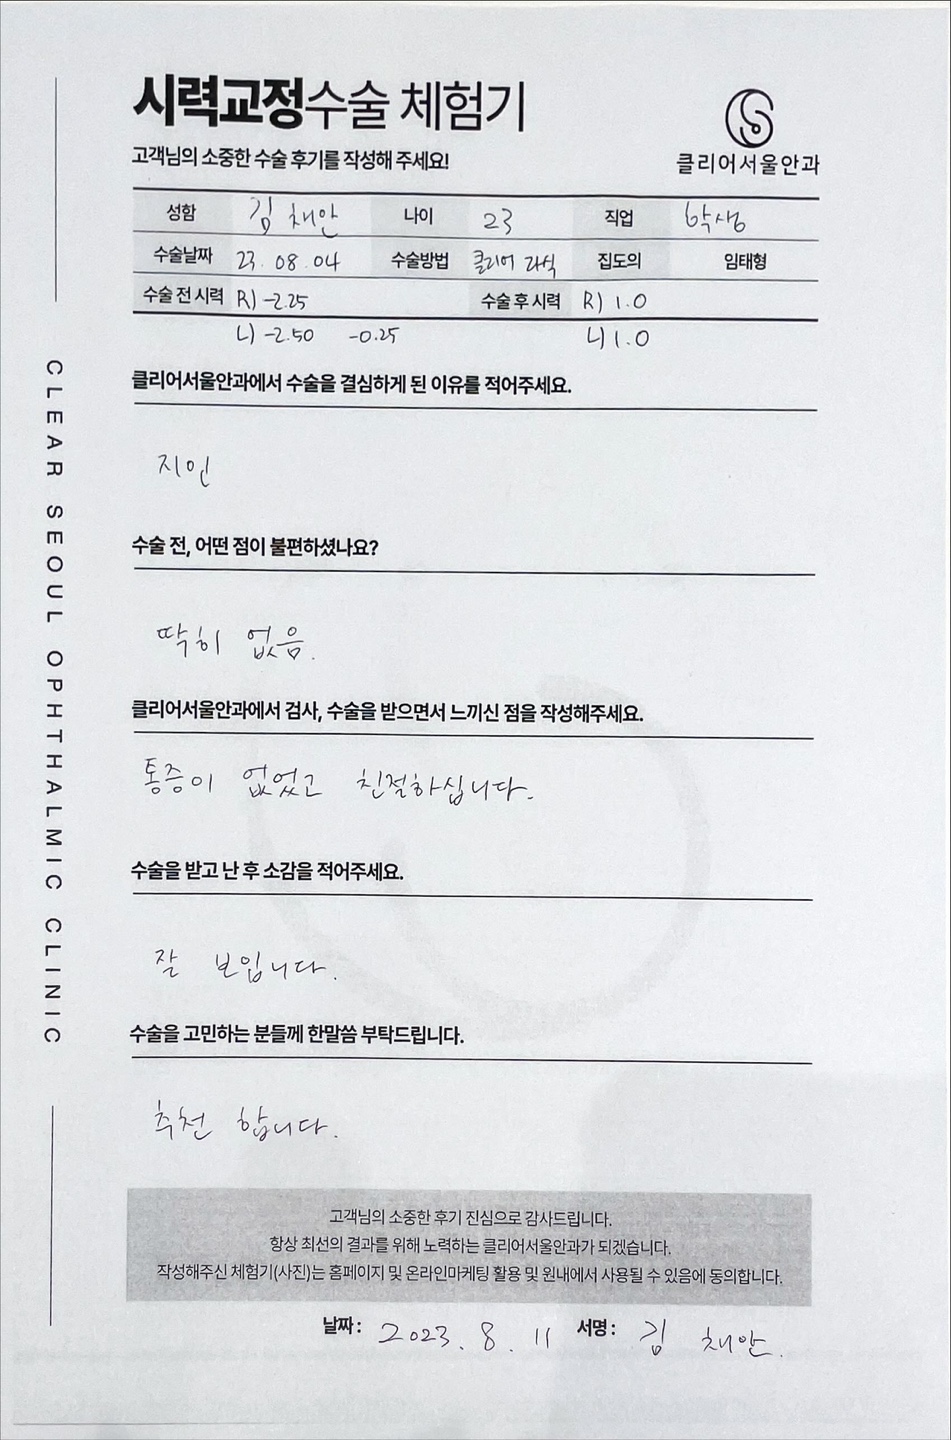 시력교정수술 체험기
고객님의 소중한 수술 후기를 작성해 주세요!
클리어서울안과
성함 김 채안 나이 23 직업 학생
수술날짜 23. 08. 04 수술방법 클리어 라식 집도의 임태형
수술 전 시력 R) -2.25 수술 후 시력 R) 1.0
L) -2.50 -0.25 L) 1.0
클리어서울안과에서 수술을 결심하게 된 이유를 적어주세요.
지인
수술 전, 어떤 점이 불편하셨나요?
딱히 없음.
클리어서울안과에서 검사, 수술을 받으면서 느끼신 점을 작성해주세요.
통증이 없었고 친절하십니다.
수술을 받고 난 후 소감을 적어주세요.
잘 보입니다.
수술을 고민하는 분들께 한말씀 부탁드립니다.
추천 합니다.
고객님의 소중한 후기 진심으로 감사드립니다.
항상 최선의 결과를 위해 노력하는 클리어서울안과가 되겠습니다.
작성해주신 체험기(사진)는 홈페이지 및 온라인마케팅 활용 및 원내에서 사용될 수 있음에 동의합니다.
날짜 : 2023. 8. 11 서명 : 김 채안.
CLEAR SEOUL OPHTHALMIC CLINIC